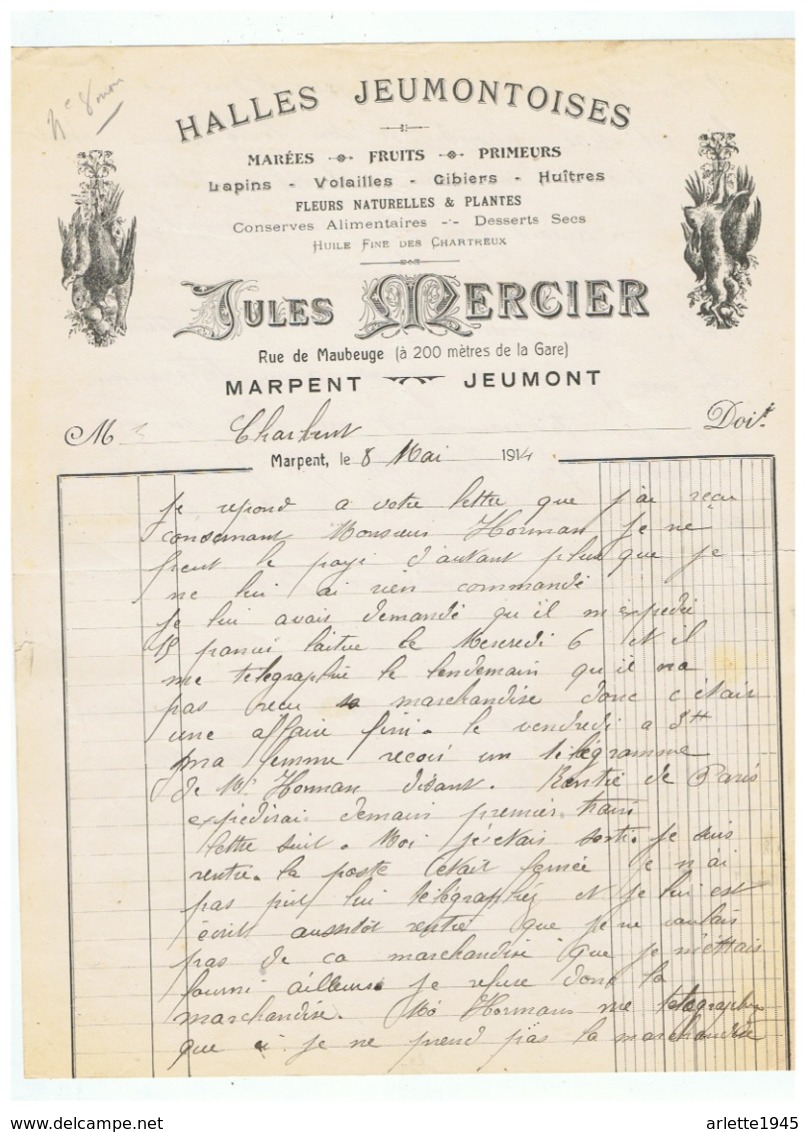 HALLES JEUMONTOISES
MARÉES - FRUITS - PRIMEURS
Lapins - Volailles - Gibiers - Huîtres
FLEURS NATURELLES & PLANTES
Conserves Alimentaires - Desserts Secs
HUILE FINE DES CHARTREUX
JULES MERCIER
Rue de Maubeuge (à 200 mètres de la Gare)
MARPENT JEUMONT
M Doit
Marpent, le 8 Mai 1914
Je repond a votre lettre que j'ai reçu
consernant Monsieur Horman Je ne
peut le payé d'autant plus que je
ne lui ai rien commandé
Je lui avais demandé qu'il m'expédié
15 panier laitue le Mercredi 6 et il
me telegraphie le lendemain qu'il na
pas reçu sa marchandise donc c'étais
une affaire fini. le vendredi a 8H
ma femme reçoi un télégramme
de Mr Horman disant. Rentré de Paris
expédirai demain premier train
lettre suit. Moi j'étais sorti. je suis
rentré. la poste était fermée je n'ai
pas put lui télégraphés et je lui est
écrit aussitôt rentré que je ne voulais
pas de ca marchandise que je m'éttais
fourni ailleurs je refuse donc la
marchandise. Mr Hormans me telegraphie
que si je ne prend pas la marchandise
arlette1945